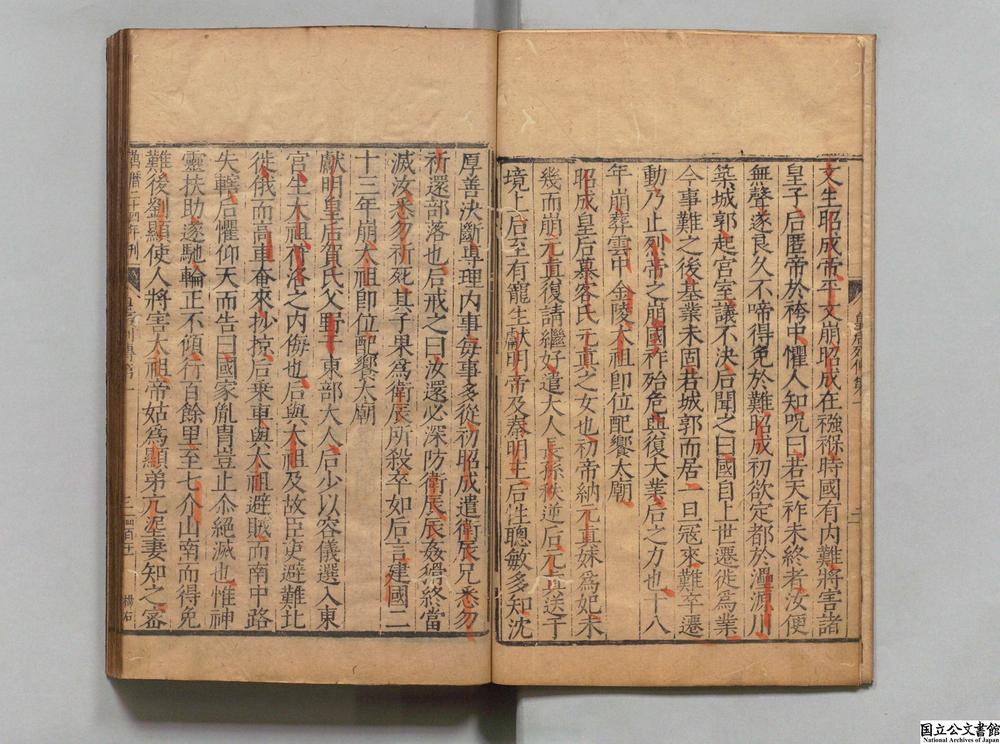 文生昭成帝平文崩昭成在襁褓時國有内難將害諸
皇子后匿帝於袴中懼人知呪曰若天祚未終者汝便
無聲遂良久不啼得免於難昭成初欲定都於㶟源川
築城郭起宮室議不決后聞之曰國自上世遷徙爲業
今事難之後基業未固若城郭而居一旦冦來難卒遷
動乃止烈帝之崩國祚殆危興復大業后之力也十八
年崩葬雲中金陵太祖即位配饗太廟
昭成皇后慕容氏元真之女也初帝納元真妹爲妃未
幾而崩元真復請繼好遣大人長孫秩逆后元真送于
境上后至有寵生獻明帝及秦明王后性聰敏多知沈
厚善決斷專理内事每事多從初昭成遣衛辰兄悉勿
祈還部落也后戒之曰汝還必深防衛辰辰姦猾終當
滅汝悉勿祈死其子果爲衛辰所殺卒如后言建國二
十三年崩太祖即位配饗太廟
獻明皇后賀氏父野干東部大人后少以容儀選入東
宮生太祖苻洛之内侮也后與太祖及故臣吏避難北
徙俄而高車奄來抄掠后乗車與太祖避賊而南中路
失轄后懼仰天而告曰國家胤胄豈止尒絕滅也惟神
靈扶助遂馳輪正不傾行百餘里至七介山南而得免
難後劉顯使人將害太祖帝姑爲顯弟亢埿妻知之密
萬曆二十四年刊
国立公文書館
National Archives of Japan